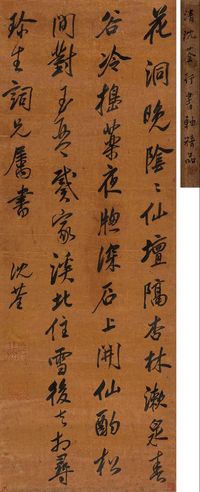 花洞晚陰々仙壇隔杏林漱泉春
谷冷搗藥夜牕深石上開仙酌松
間對玉琴戴家溪北住雪後去相尋
珎生詞兄屬書 沈荃
清沈荃行書軸精品